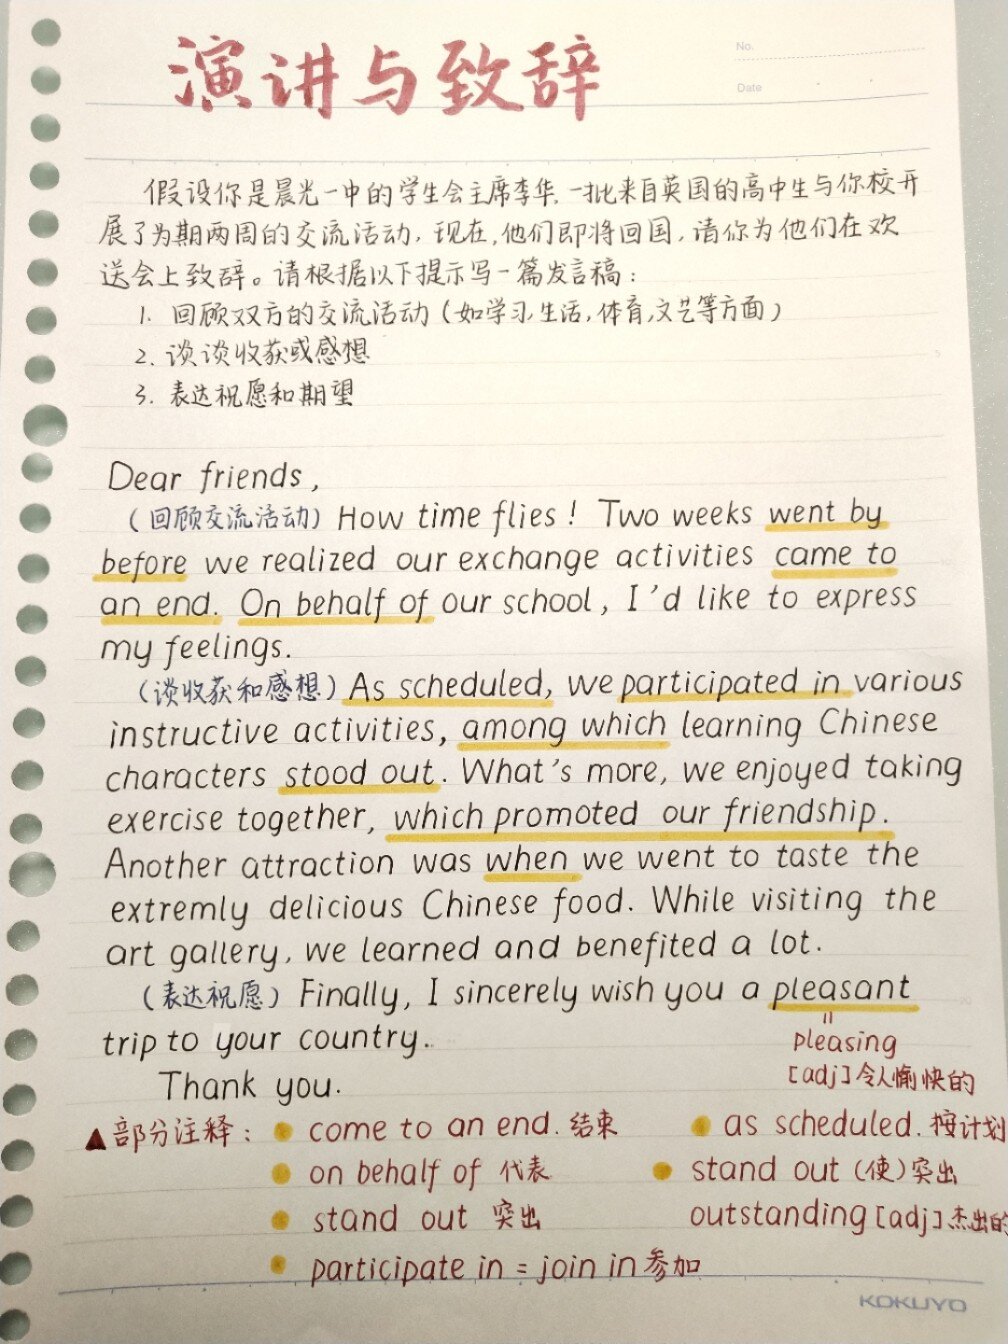 演讲与致辞
No.
Date
假设你是晨光一中的学生会主席李华,一批来自英国的高中生与你校开
展了为期两周的交流活动,现在,他们即将回国,请你为他们在欢
送会上致辞。请根据以下提示写一篇发言稿:
1. 回顾双方的交流活动(如学习,生活,体育,文艺等方面)
2. 谈谈收获或感想
3. 表达祝愿和期望
Dear friends,
(回顾交流活动) How time flies! Two weeks went by
before we realized our exchange activities came to
an end. On behalf of our school, I'd like to express
my feelings.
(谈收获和感想) As scheduled, we participated in various
instructive activities, among which learning Chinese
characters stood out. What's more, we enjoyed taking
exercise together, which promoted our friendship.
Another attraction was when we went to taste the
extremly delicious Chinese food. While visiting the
art gallery, we learned and benefited a lot.
(表达祝愿) Finally, I sincerely wish you a pleasant
trip to your country.
=
pleasing
[adj]令人愉快的
Thank you.
▲部分注释: come to an end. 结束 as scheduled. 按计划
on behalf of 代表 stand out (使)突出
stand out 突出 outstanding [adj]杰出的
participate in = join in 参加
KOKUYO